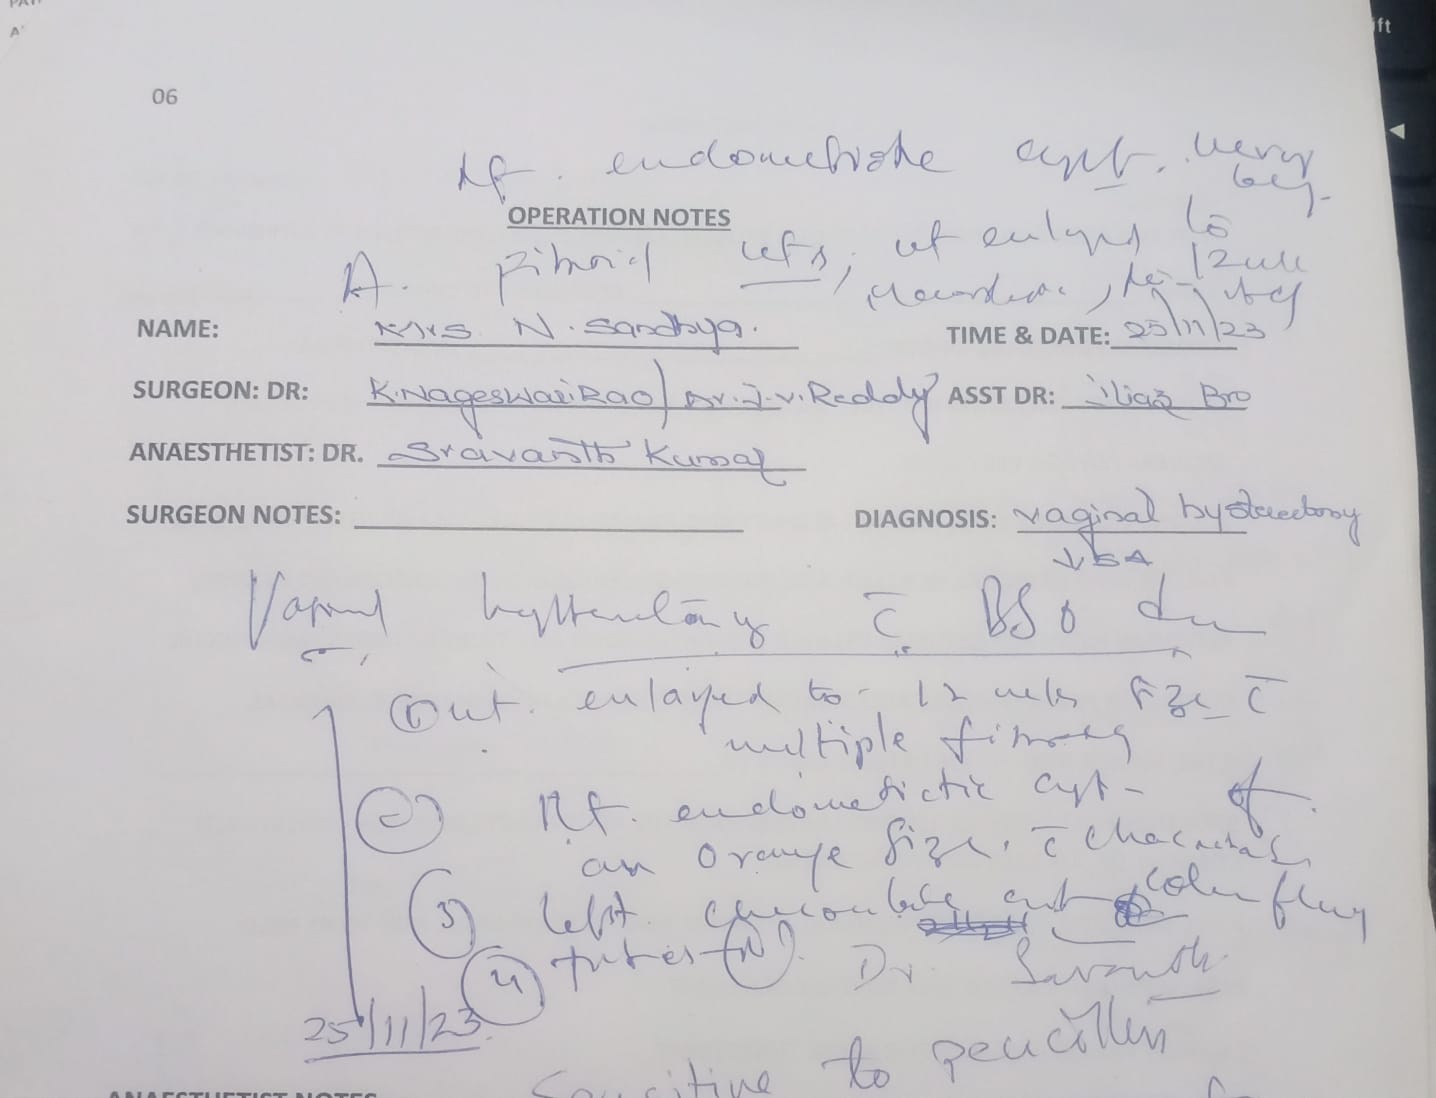 06
Rt. endometriotic cyst. very
big.
OPERATION NOTES
A. Fibroid uts; ut enlarged to
12 wk
NAME: Mrs N. Sandhya.
TIME & DATE: 25/11/23
SURGEON: DR: K.NageswarRao/ Dr.J.V.Reddy ASST DR: iliaz Bro
ANAESTHETIST: DR. Sravanth Kumar
SURGEON NOTES:
DIAGNOSIS: vaginal hysterectomy
↓ SA
Vaginal hysterectomy c̄ BSO
① ut. enlarged to 12 weeks size c̄
multiple fibroids
② Rt. endometriotic cyst - of
an orange size. c̄ 
③ left cyst
④ tubes (N)
Dr. Sravanth
25/11/23
Sensitive to pencillin
ANAESTHETIST NOTES